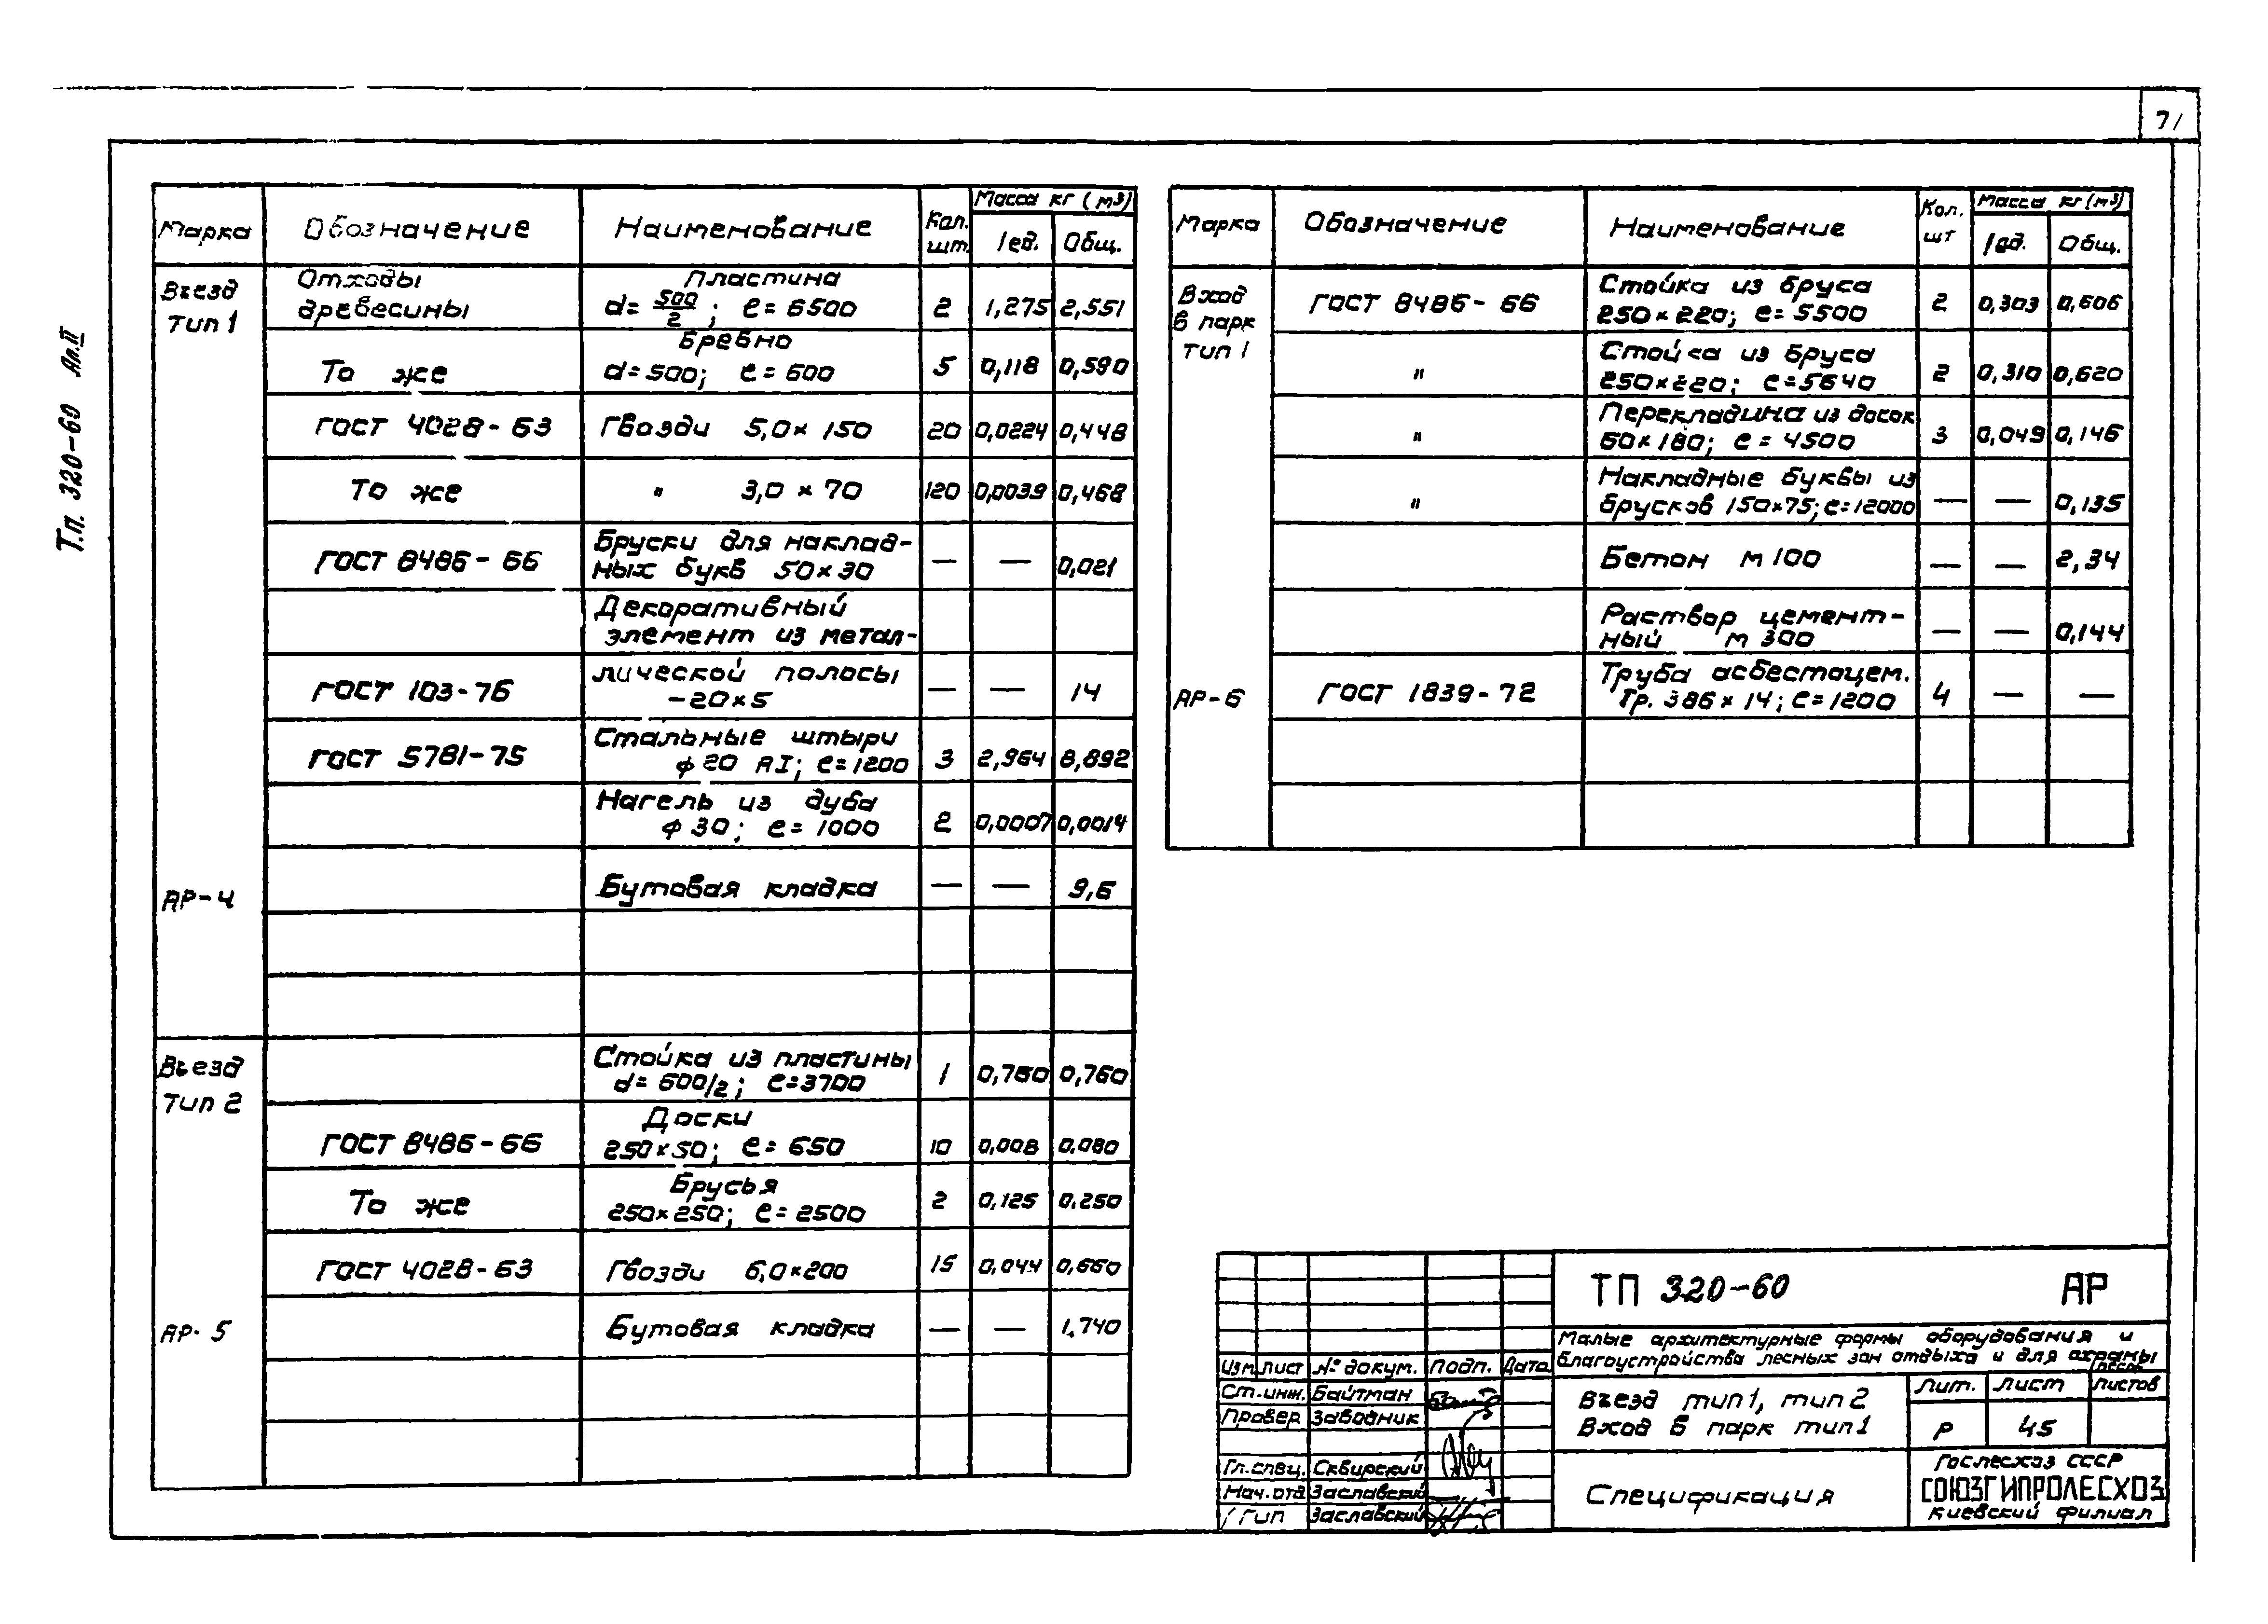 71
Т.п. 320-60 Ал.II
Марка Обозначение Наименование Кол. шт. Масса кг (м³) 1ед. Общ.
Въезд тип 1
Отходы древесины Пластина d=500/2; ℓ=6500 2 1,275 2,551
То же Бревно d=500; ℓ=600 5 0,118 0,590
ГОСТ 4028-63 Гвозди 5,0×150 20 0,0224 0,448
То же " 3,0×70 120 0,0039 0,468
ГОСТ 8486-66 Бруски для наклад-
ных букв 50×30 — — 0,021
Декоративный
элемент из метал-
ГОСТ 103-76 лической полосы
-20×5 — — 14
ГОСТ 5781-75 Стальные штыри
ϕ20 АI; ℓ=1200 3 2,964 8,892
Нагель из дуба
ϕ30; ℓ=1000 2 0,0007 0,0014
АР-4 Бутовая кладка — — 9,6
Въезд тип 2
Стойка из пластины
d=600/2; ℓ=3700 1 0,760 0,760
ГОСТ 8486-66 Доски
250×50; ℓ=650 10 0,008 0.080
То же Брусья
250×250; ℓ=2500 2 0,125 0.250
ГОСТ 4028-63 Гвозди 6,0×200 15 0,044 0,660
АР-5 Бутовая кладка — — 1.740
Марка Обозначение Наименование Кол. шт Масса кг (м³) 1ед. Общ.
Вход
в парк
тип 1
ГОСТ 8486-66 Стойка из бруса
250×220; ℓ=5500 2 0,303 0,606
" Стойка из бруса
250×220; ℓ=5640 2 0,310 0,620
" Перекладина из досок
60×180; ℓ=4500 3 0,049 0,146
" Накладные буквы из
брусков 150×75; ℓ=12000 — — 0,135
Бетон м 100 — — 2,34
Раствор цемент-
ный м 300 — — 0,144
АР-6 ГОСТ 1839-72 Труба асбестоцем.
Тр. 386×14; ℓ=1200 4 — —
ТП 320-60 АР
Малые архитектурные формы оборудования и
благоустройства лесных зон отдыха и для охраны
Изм. лист № докум. Подп. Дата
Ст.инж. Байтман
Провер. Заводник
Гл.спец. Сквирский
Нач.отд Заславский
Гип Заславский
Въезд тип 1, тип 2
Вход в парк тип 1
Лит. Лист Листов
Р 45
Спецификация
Гослесхоз СССР
СОЮЗГИПРОЛЕСХОЗ
Киевский филиал